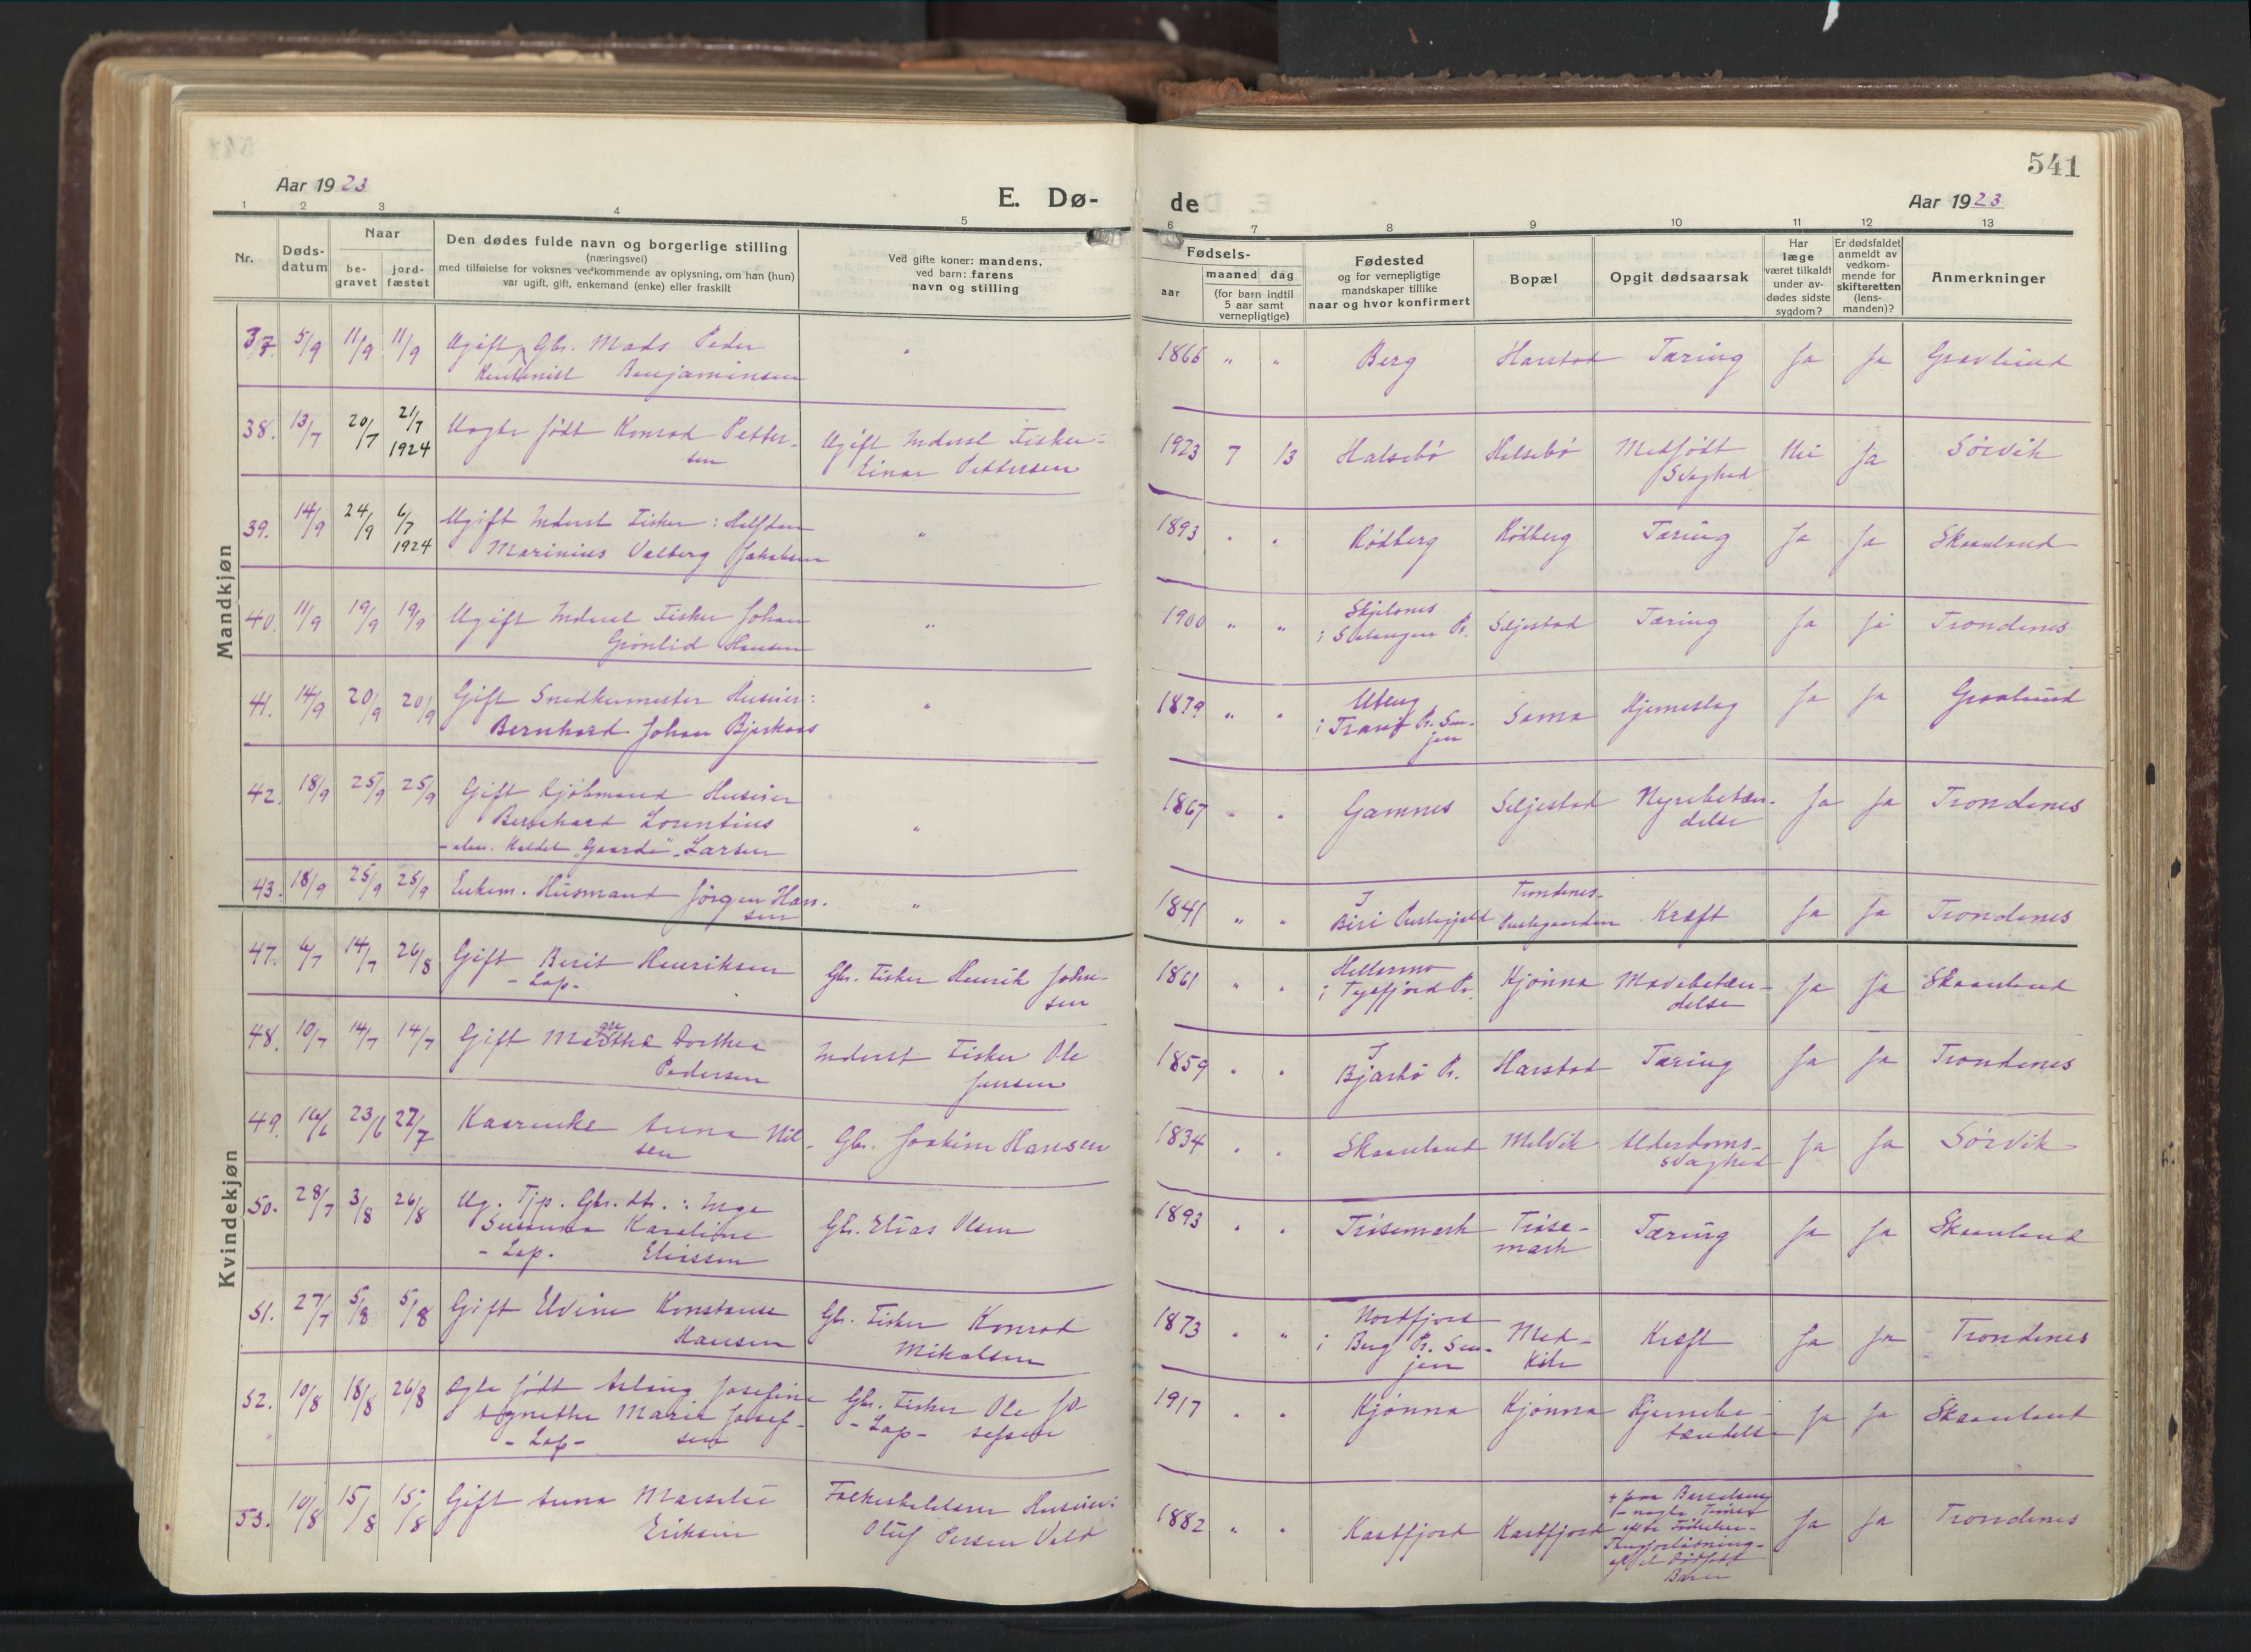 541
Aar 1923
E. Dø-
de
Aar 1923
1 2 3 4 5
6 7 8 9 10 11 12 13
Nr.
Døds-
datum
Naar
be-
gravet
jord-
fæstet
Den dødes fulde navn og borgerlige stilling
(næringsvei)
med tilføielse for voksnes vedkommende av oplysning, om han (hun)
var ugift, gift, enkemand (enke) eller fraskilt
Ved gifte koner: mandens,
ved barn: farens
navn og stilling
Fødsels-
aar
maaned dag
(for barn indtil
5 aar samt
vernepligtige)
Fødested
og for vernepligtige
mandskaper tillike
naar og hvor konfirmert
Bopæl
Opgit dødsaarsak
Har
læge
været tilkaldt
under av-
dødes sidste
sygdom?
Er dødsfaldet
anmeldt av
vedkom-
mende for
skifteretten
(lens-
manden)?
Anmerkninger
Mandkjøn
37. 5/9 11/9 11/9 Ugift Gbr. Mads Peder
Benjaminsen
" 1866 " " Berg Harstad Tæring Ja Ja Gravlund
38. 13/7 20/7 21/7
1924
Uægte født Konrad Petter-
sen
Ugift Inderst Fisker:
Einar Pettersen
1923 7 13 Halsebø Halsebø Medfødt
Svaghed
Nei Ja Sørvik
39. 14/9 24/9 6/7
1924
Ugift Inderst Fisker: Halfdan
Marinius Valberg Jakobsen
" 1893 " " Rødberg Rødberg Tæring Ja Ja Skaanland
40. 11/9 19/9 19/9 Ugift Inderst Fisker Johan
Grønlid Hansen
" 1900 " " Skjelnes
i Salangen Pr.
Seljestad Tæring Ja Ja Trondenes
41. 14/9 20/9 20/9 Gift Snedkermester Huseier:
Bernhard Johan Bjerkaas
" 1879 " "
i Tranø Pr. Sen-
jen
Sama Hjerneslag Ja Ja Gravlund
42. 18/9 25/9 25/9 Gift Kjøbmand Huseier
Bernhard Lorentius
- alm. kaldet "Gaarde" - Larsen
" 1867 " " Gamnes Seljestad Nyrebetæn-
delse
Ja Ja Trondenes
43. 18/9 25/9 25/9 Enkem. Husmand Jørgen Han-
sen
" 1841 " " I
Biri Prestegjeld
Trondenes-
Prestegaarden
Kræft Ja Ja Trondenes
Kvindekjøn
47. 6/7 14/7 26/8 Gift Berit Henriksen
- Lap -
Gbr. Fisker Henrik John-
sen
1861 " " Hellermo
i Tysfjord Pr.
Kjønna Mavebetæn-
delse
Ja Ja Skaanland
48. 10/7 14/7 14/7 Gift Dorthea
Pedersen
Inderst Fisker Ole
Jensen
1859 " " I
Bjarkø Pr.
Harstad Tæring Ja Ja Trondenes
49. 16/6 23/6 27/7 Kaarenke Anna Nil-
sen
Gbr. Joakim Hansen
1834 " " Skaanland Melvik Alderdoms-
svaghed
Ja Ja Sørvik
50. 28/7 3/8 26/8 Ug. Tjp. Gbr. dtr.: Inga
Susanna Karoline
- Lap - Eliassen
Gbr. Elias Olsen
1893 " " Trøsemark Trøse-
mark
Tæring Ja Ja Skaanland
51. 27/7 5/8 5/8 Gift Elvine Konstanse
Hansen
Gbr. Fisker Konrad
Mikalsen
1873 " " Nordfjord
i Berg Pr. Sen-
jen
Med-
kila
Kræft Ja Ja Trondenes
52. 10/8 18/8 26/8 Ægte født Aslaug Josefine
Agnethe Marie Josef-
- Lap - sen
Gbr. Fisker Ole Jo
- Lap - sefsen
1917 " " Kjønna Kjønna Hjernebe-
tændelse
Ja Ja Skaanland
53. 10/8 15/8 15/8 Gift Anna Marselie
Eriksen
Huseier:
Oluf Persen Vold
1882 " " Kastfjord Kastfjord + paa Barselseng
- nogle Timer
efter
af et dødfødt
Barn
Ja Ja Trondenes